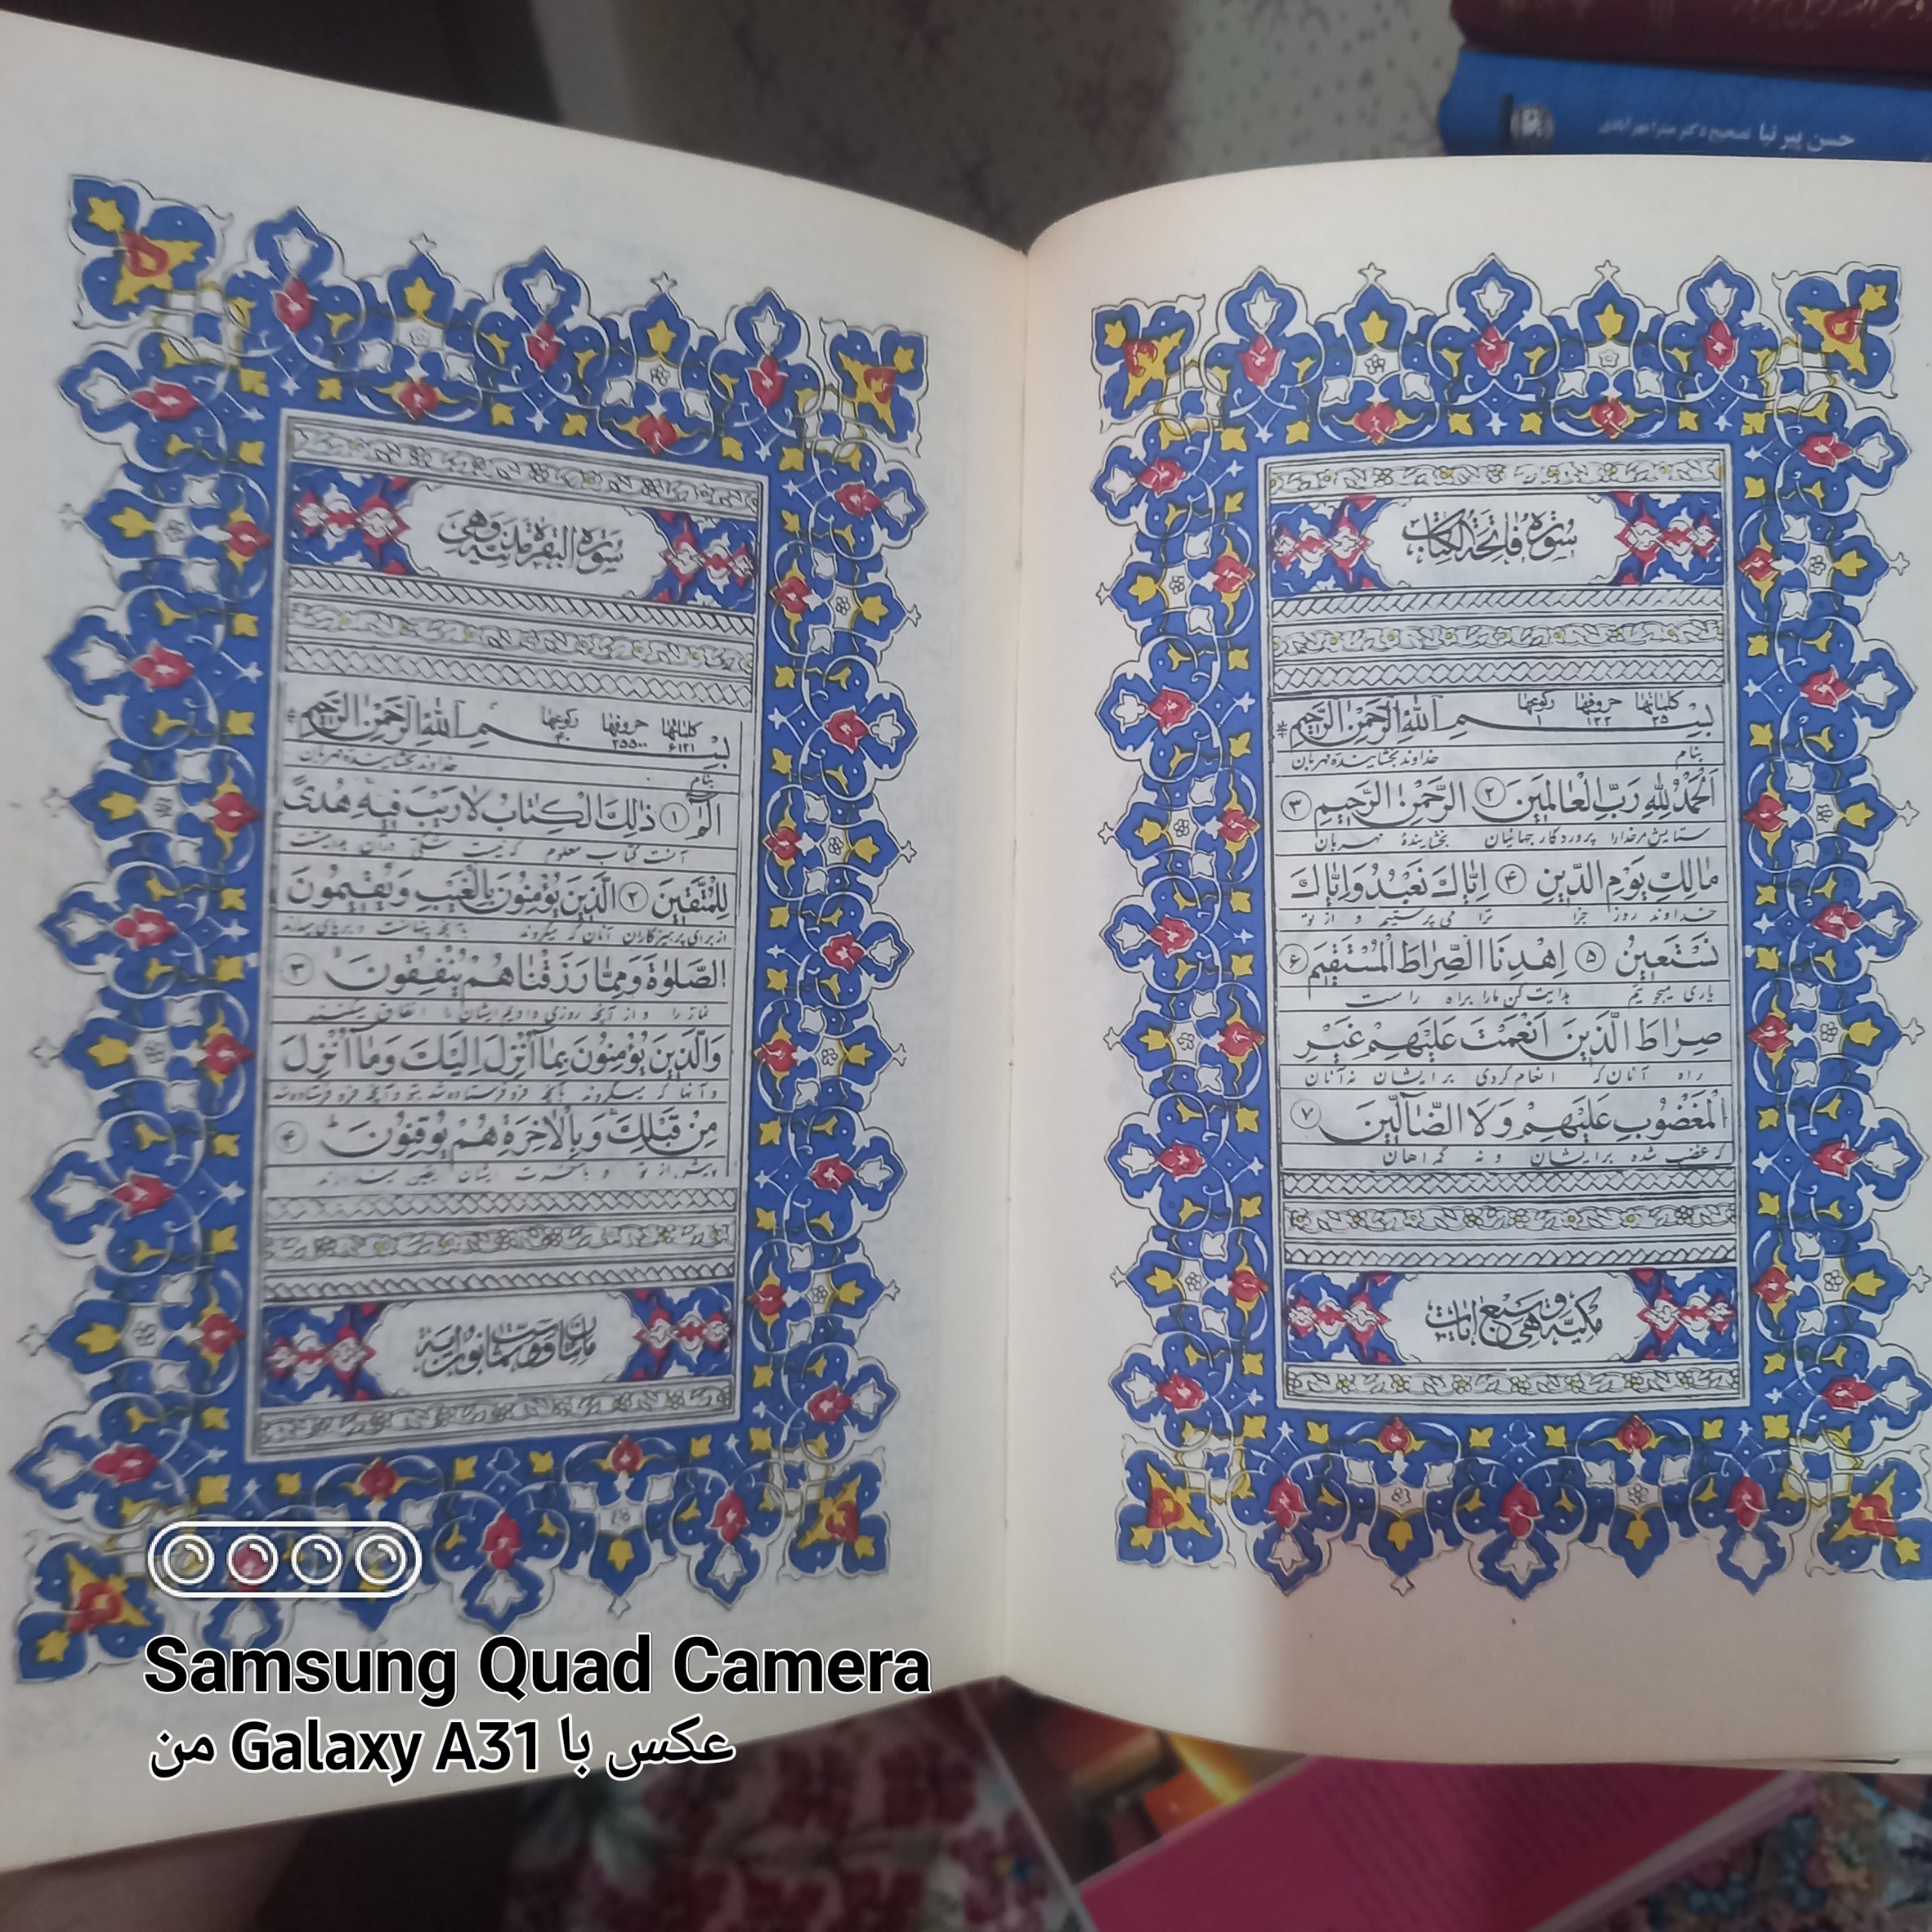 حسن پیرنیا تصحیح دکتر میترا مهرآبادی
سورة فاتحة الكتاب
كلماتها ٢٥ حروفها ١٢٢ ركوعها ١
بِسْمِ اللهِ الرَّحْمٰنِ الرَّحِيمِ
بنام خداوند بخشاینده مهربان
اَلْحَمْدُ لِلّٰهِ رَبِّ الْعَالَمِينَ ٢ الرَّحْمٰنِ الرَّحِيمِ ٣
ستایش مرخدارا پروردگار جهانیان بخشایندهٔ مهربان
مَالِكِ يَوْمِ الدِّينِ ۴ اِيَّاكَ نَعْبُدُ وَاِيَّاكَ
خداوند روز جزا ترا می پرستیم و از تو
نَسْتَعِينُ ۵ اِهْدِنَا الصِّرَاطَ الْمُسْتَقِيمَ ۶
یاری میجوئیم هدایت کن مارا براه راست
صِرَاطَ الَّذِينَ اَنْعَمْتَ عَلَيْهِمْ غَيْرِ
راه آنان که انعام کردی برایشان نه آنان
الْمَغْضُوبِ عَلَيْهِمْ وَلَا الضَّآلِّينَ ٧
که غضب شده برایشان و نه گمراهان
مكية وهي سبع ايات
سورة البقرة مدنية وهي
كلماتها ۶۱۲۱ حروفها ٢٥٥٠٠ ركوعها ۴۰
بِسْمِ اللهِ الرَّحْمٰنِ الرَّحِيمِ
بنام خداوند بخشاینده مهربان
الٓمٓ ١ ذٰلِكَ الْكِتَابُ لَا رَيْبَ فِيهِ هُدًى
آنست کتاب معلوم که نیست شکی در آن هدایتست
لِلْمُتَّقِينَ ٢ الَّذِينَ يُؤْمِنُونَ بِالْغَيْبِ وَيُقِيمُونَ
از برای پرهیزکاران آنان که میگروند بآنچه پنهانست و برپای میدارند
الصَّلٰوةَ وَمِمَّا رَزَقْنَاهُمْ يُنْفِقُونَ ٣
نماز را و از آنچه روزی دادیم ایشان را انفاق میکنند
وَالَّذِينَ يُؤْمِنُونَ بِمَا اُنْزِلَ اِلَيْكَ وَمَا اُنْزِلَ
و آنها که میگروند بآنچه فرو فرستاده شد بتو و آنچه فرو فرستاده شد
مِنْ قَبْلِكَ وَبِالْاٰخِرَةِ هُمْ يُوقِنُونَ ۴
پیش از تو و بآخرت ایشان یقین میدارند
مائتان وست وثمانون اية
Samsung Quad Camera
عکس با Galaxy A31 من